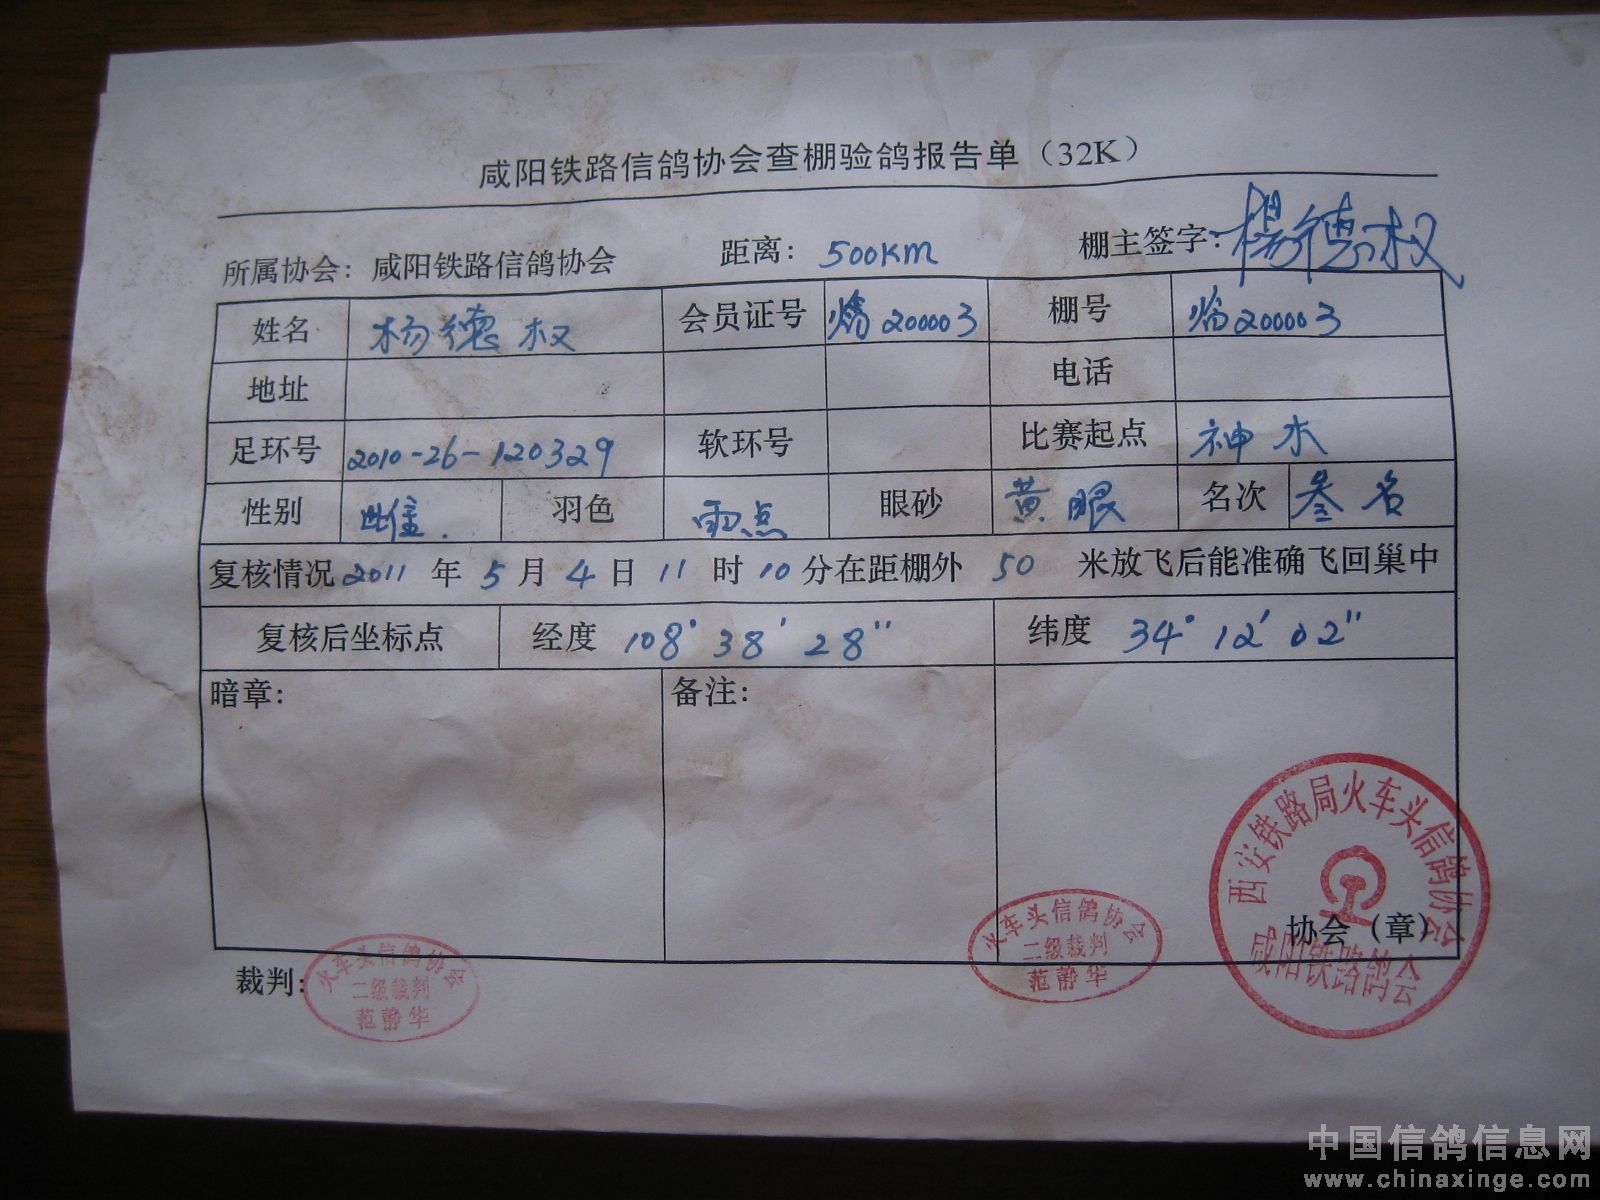 咸阳铁路信鸽协会查棚验鸽报告单（32K）
所属协会：咸阳铁路信鸽协会 距离：500KM 棚主签字：楊德权
姓名 杨德权 会员证号 200003 棚号 200003
地址 电话
足环号 2010-26-120329 软环号 比赛起点 神木
性别 雌. 羽色 雨点 眼砂 黄眼 名次 叁名
复核情况 2011 年 5 月 4 日 11 时 10 分在距棚外 50 米放飞后能准确飞回巢中
复核后坐标点 经度 108° 38′ 28″ 纬度 34° 12′ 02″
暗章： 备注：
西安铁路局火车头信鸽协会
咸阳铁路鸽会
协会（章）
火车头信鸽协会
二级裁判
范静华
裁判：
火车头信鸽协会
二级裁判
范静华
中国信鸽信息网
www.chinaxinge.com